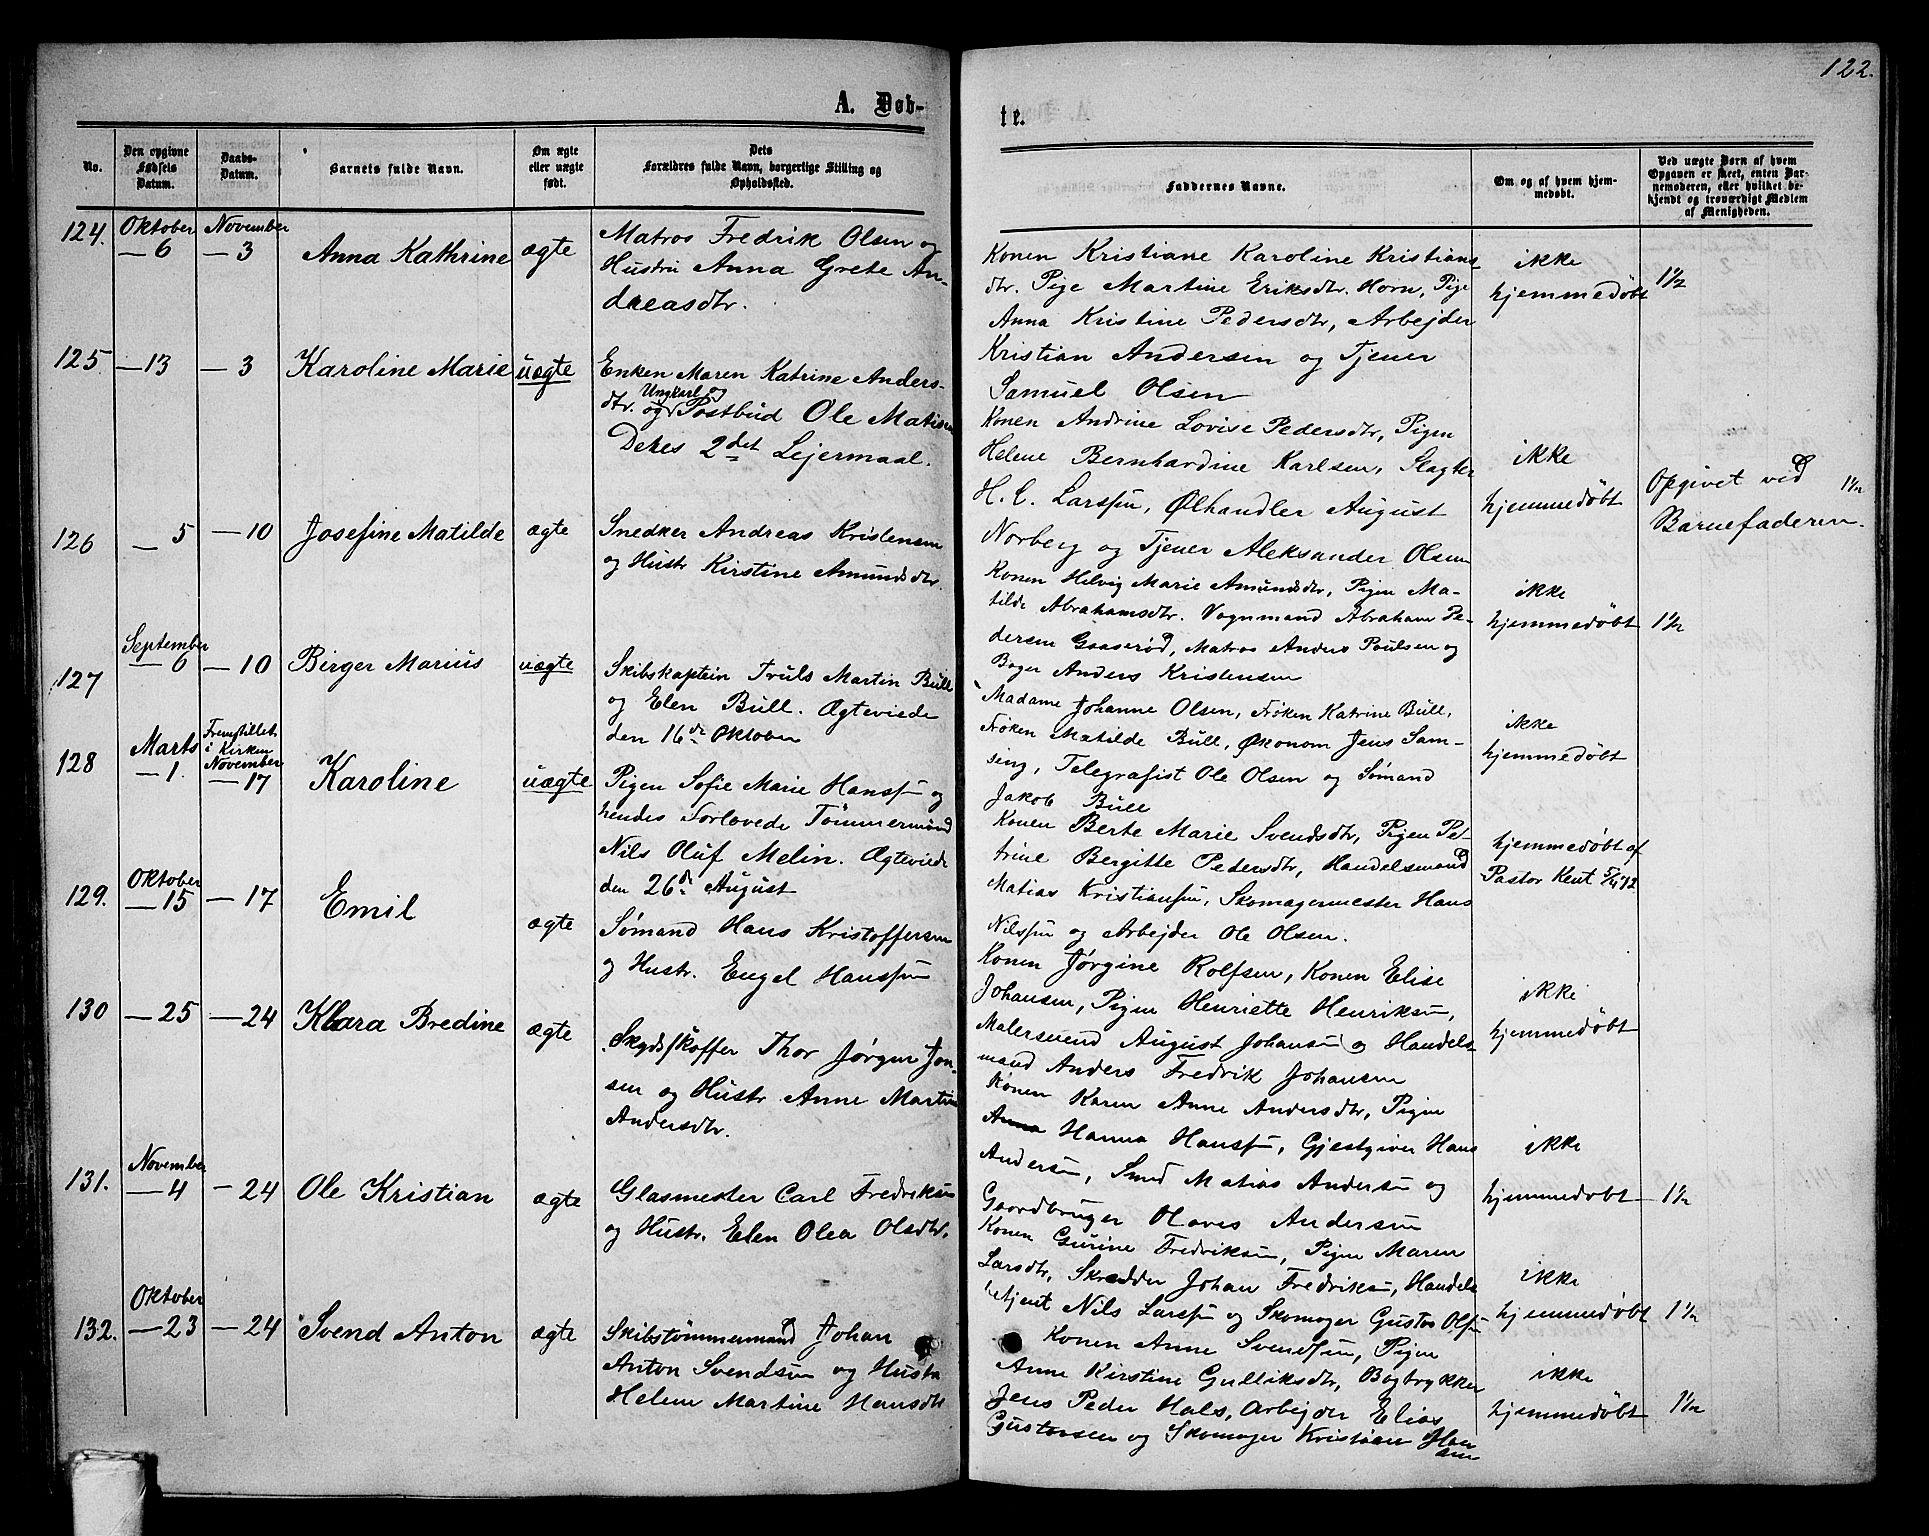 122.
A. Døb-
te.
No.
Den opgivne
Fødsels
Datum.
Daabs-
Datum.
Barnets fulde Navn.
Om ægte
eller uægte
født.
Dets
Forældres fulde Navn, borgerlige Stilling og
Opholdssted.
Faddernes Navne.
Om og af hvem hjem-
medøbt.
Ved uægte Børn af hvem
Opgaven er skeet, enten Bar-
nemoderen, eller hvilket be-
kjendt og troværdigt Medlem
af Menigheden.
124.
Oktober
— 6
November
— 3
Anna Kathrine
ægte
Matros Fredrik Olsen og
Hustru Anna Grete An-
dreasdtr.
Konen Kristiane Karoline Kristians-
dtr. Pige Martine Eriksdtr. Horn, Pige
Anna Kristine Pedersdtr, Arbejder
Kristian Andersen og Tjener
Samuel Olsen
ikke
hjemmedøbt
1½
125.
— 13
— 3
Karoline Marie
uægte
Enken Maren Katrine Anders-
Ungkarl og
dtr. og Postbud Ole Matisen
Deres 2det Lejermaal.
Konen Andrine Lovise Pedersdtr, Pigen
Helene Bernhardine Karlsen, Slagter
H. C. Larssen, Ølhandler August
Norberg og Tjener Aleksander Olsen
ikke
hjemmedøbt
Opgivet ved
Barnefaderen.
1½
126
— 5
— 10
Josefine Matilde
ægte
Snedker Andreas Kristensen
og Hustr Kirstine Amundsdtr.
Konen Helvig Marie Amundsdtr, Pigen Ma-
tilde Abrahamsdtr. Vognmand Abraham Pe-
dersen Gaaserød, Matros Anders Poulsen og
Bager Anders Kristensen
ikke
hjemmedøbt
1½
127
September
— 6
— 10
Birger Marius
uægte
Skibskaptein Truls Martin Bull
og Elen Bull. Ægteviede
den 16de Oktober
Madame Johanne Olsen, Frøken Katrine Bull,
Frøken Matilde Bull, Økonom Jens Sam-
sing, Telegrafist Ole Olsen og Sømand
Jakob Bull
ikke
hjemmedøbt
128
Marts
— 1.
Fremstillet
i Kirken
November
— 17
Karoline
uægte
Pigen Sofie Marie Hanssen og
hendes Forlovede Tømmermand
Nils Oluf Melin. Ægteviede
den 26de August
Konen Berte Marie Svendsdtr, Pigen Pe-
trine Bergitte Pedersdtr, Handelsmand
Matias Kristiansen, Skomagermester Hans
Nilssen og Arbejder Ole Olsen.
hjemmedøbt af
Pastor Kent 5/4 72
129.
Oktober
— 15
— 17
Emil
ægte
Sømand Hans Kristoffersen
og Hustr. Engel Hanssen
Konen Jørgine Rolfsen, Konen Elise
Johansen, Pigen Henriette Henriksen,
Malersvend August Johansen og Handels-
mand Anders Fredrik Johansen
ikke
hjemmedøbt
130
— 25
— 24
Klara Bredine
ægte
Skydsskaffer Thor Jørgen Jon-
sen og Hustr Anne Martine
Andersdtr.
Konen Karen Anne Andersdtr, Pigen
Anna Hanna Hanssen, Gjestgiver Hans
Andersen, Smed Matias Andersen og
Gaardbruger Hans Andersen
ikke
hjemmedøbt
1½
131.
November
— 4
— 24
Ole Kristian
ægte
Glasmester Carl Fredriksen
og Hustr. Elen Olea Olsdtr.
Konen Gurine Fredriksen, Pigen Maren
Larsdtr, Skrædder Johan Fredriksen, Handels
betjent Nils Larssen og Skomager Gustav Olsen
ikke
hjemmedøbt
1½
132.
Oktober
— 23
— 24
Svend Anton
ægte
Skibstømmermand Johan
Anton Svendsen og Hustru
Helene Martine Hansdtr
Konen Anne Svendsen, Pigen
Anne Kirstine Gulliksdtr, Bogtrykker
Jens Peder Hals, Arbejder Elias
Gustavsen og Skomager Kristian Han
sen
ikke
hjemmedøbt
1½